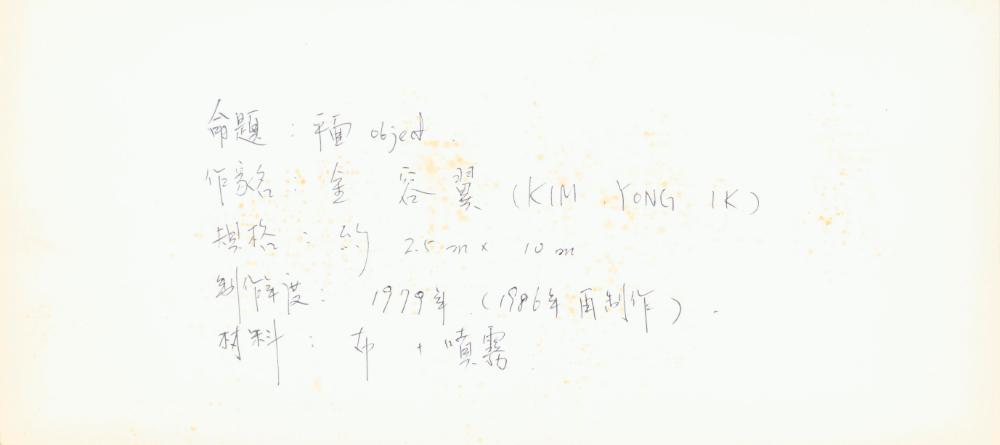 命題 : 平面 object.
作家名 : 金 容 翼 (KIM YONG IK)
規格 : 約 2.5 m × 10 m
制作年度 : 1979年 (1986年 再制作).
材料 : 布 + 噴霧